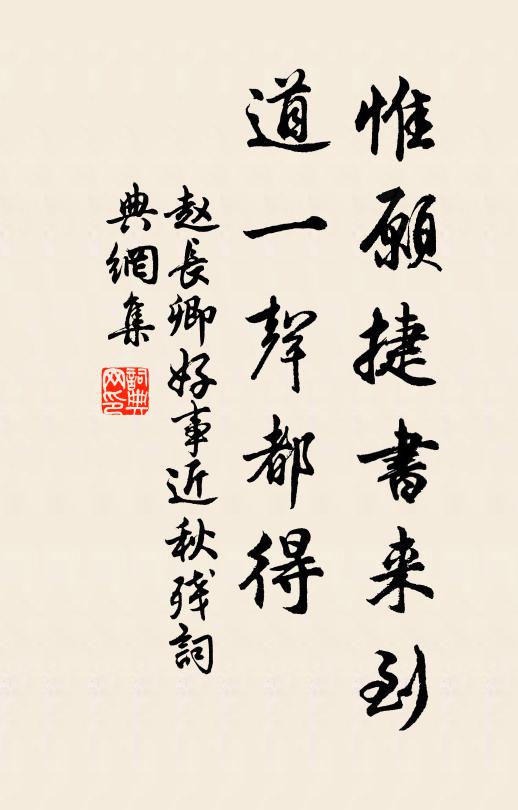 惟願捷書来到
道一聲都得
赵長卿好事近秋残詞
典網集
詞典网印